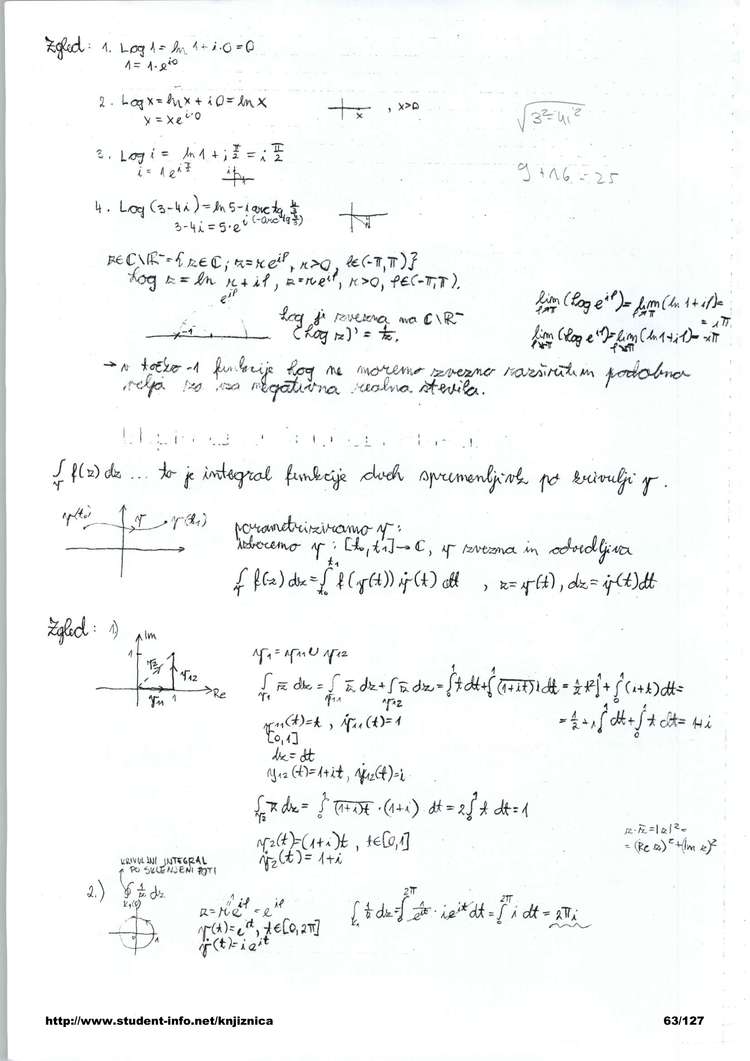 Zgled: 1. Log 1 = ln 1 + i·0 = 0
1 = 1·e^{i0}
2. Log x = ln x + i0 = ln x , x>0
x = x e^{i·0}
x
√(3²-4i²)
3. Log i = ln 1 + i π/2 = i π/2
i = 1 e^{i π/2}
9 + 16 = 25
4. Log (3-4i) = ln 5 - i arc tg 4/3
3-4i = 5·e^{i(-arc tg 4/3)}
z∈ℂ\ℝ⁻ = {z∈ℂ; z = re^{iφ}, r>0, φ∈(-π,π)}
Log z = ln r + iφ, z = re^{iφ}, r>0, φ∈(-π,π).
e^{iφ}
-1
Log je zvezna na ℂ\ℝ⁻
(Log z)' = 1/z.
lim (Log e^{iφ}) = lim (ln 1 + iφ) =
= iπ
lim (Log e^{iφ}) = lim (ln 1 + iφ) = -iπ
→ v točko -1 funkcije Log ne moremo zvezno razširiti in podobno
velja za vsa negativna realna števila.
∫_γ f(z) dz ... to je integral funkcije dveh spremenljivk po krivulji γ.
γ(t₀) γ γ(t₁)
parametriziramo γ:
izberemo γ: [t₀, t₁] → ℂ, γ zvezna in odvedljiva
∫_γ f(z) dz = ∫_{t₀}^{t₁} f(γ(t)) γ̇(t) dt , z = γ(t), dz = γ̇(t)dt
Zgled: 1)
Im
1
γ₂
γ₁₂
γ₁₁ 1 Re
γ₁ = γ₁₁ ∪ γ₁₂
∫_{γ₁} z̄ dz = ∫_{γ₁₁} z̄ dz + ∫_{γ₁₂} z̄ dz = ∫₀¹ t dt + ∫₀¹ \overline{(1+it)} i dt = ½ t² |₀¹ + ∫₀¹ (i+t) dt =
= ½ + i ∫₀¹ dt + ∫₀¹ t dt = 1+i
γ₁₁(t) = t , γ̇₁₁(t) = 1
[0,1]
dz = dt
γ₁₂(t) = 1+it, γ̇₁₂(t) = i
∫_{γ₂} z̄ dz = ∫₀¹ \overline{(1+i)t} · (1+i) dt = 2 ∫₀¹ t dt = 1
γ₂(t) = (1+i)t , t∈[0,1]
γ̇₂(t) = 1+i
z·z̄ = |z|² =
= (Re z)² + (Im z)²
KRIVULJNI INTEGRAL
PO SKLENJENI POTI
2.) ∮ 1/z dz
1
z = r e^{iφ} = e^{iφ}
γ(t) = e^{it}, t∈[0, 2π]
γ̇(t) = i e^{it}
∫ 1/z dz = ∫₀^{2π} 1/e^{it} · i e^{it} dt = ∫₀^{2π} i dt = 2πi
http://www.student-info.net/knjiznica 63/127